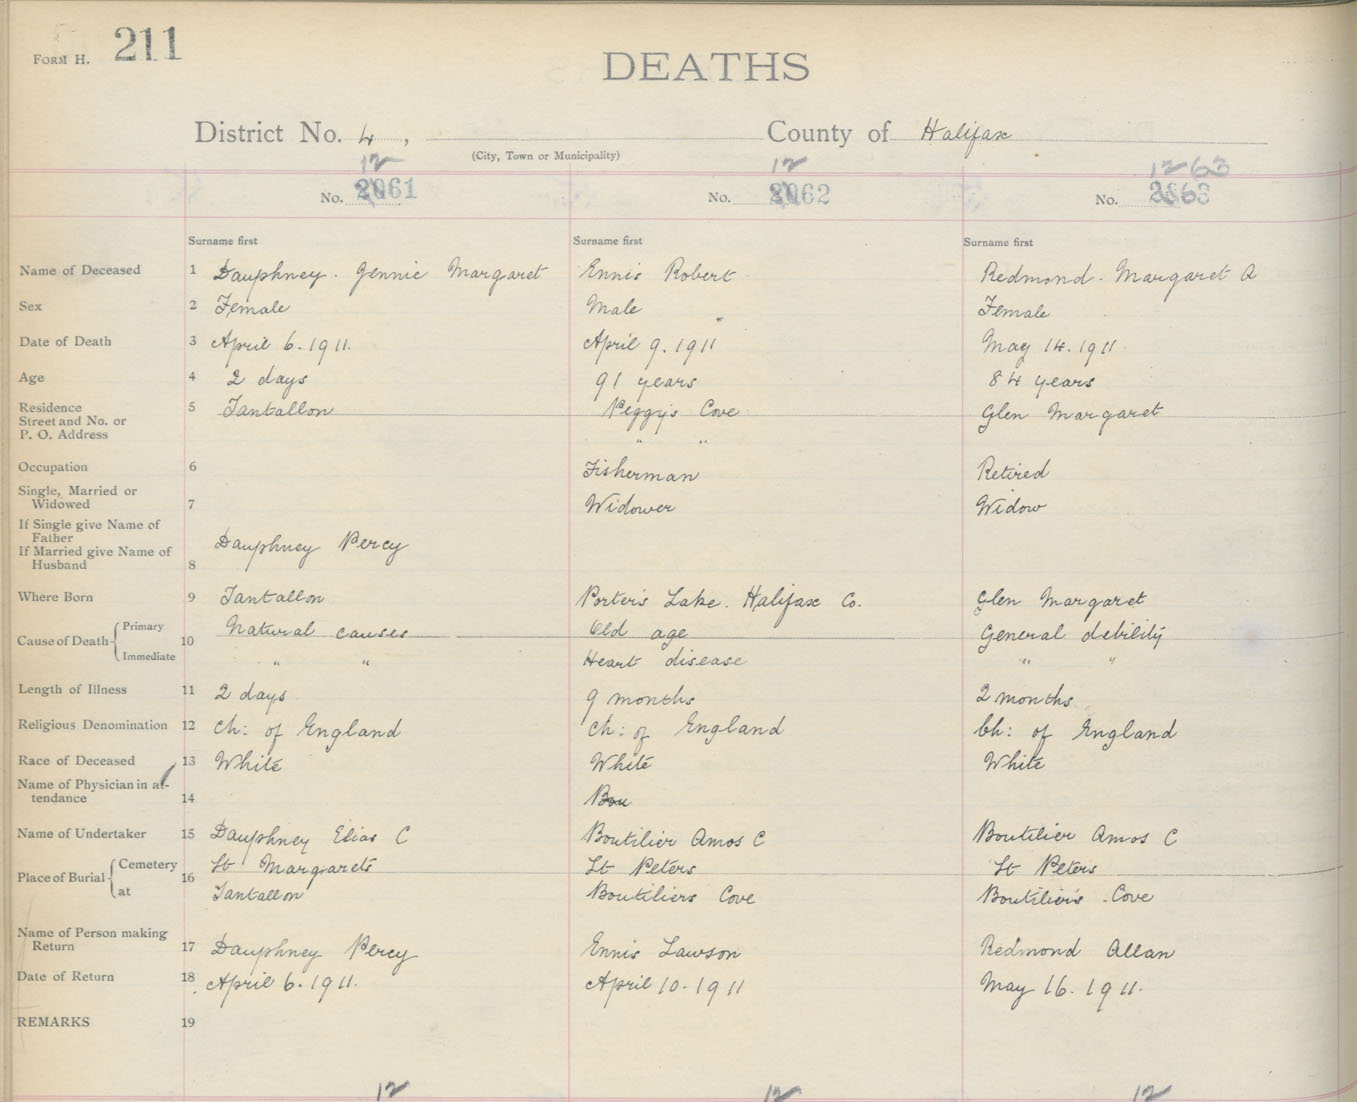 FORM H. 211
DEATHS
District No. 4, County of Halifax
(City, Town or Municipality)
12 12 12 63
No. 2061 No. 2062 No. 2063
Surname first Surname first Surname first
Name of Deceased 1 Dauphney. Jennie Margaret Ennis Robert Redmond. Margaret A
Sex 2 Female Male Female
Date of Death 3 April 6. 1911. April 9. 1911 May 14. 1911
Age 4 2 days 91 years 84 years
Residence 5 Tantallon Peggy's Cove Glen Margaret
Street and No. or
P. O. Address " "
Occupation 6 Fisherman Retired
Single, Married or
Widowed 7 Widower Widow
If Single give Name of
Father
Dauphney Percy
If Married give Name of
Husband 8
Where Born 9 Tantallon Porter's Lake. Halifax Co. Glen Margaret
Cause of Death Primary 10 Natural causes Old age General debility
Immediate " " Heart disease " "
Length of Illness 11 2 days 9 months 2 months
Religious Denomination 12 Ch: of England Ch: of England Ch: of England
Race of Deceased 13 White White White
Name of Physician in at-
tendance 14 Bou
Name of Undertaker 15 Dauphney Elias C Boutilier Amos C Boutilier Amos C
Place of Burial Cemetery 16 St Margarets St Peters St Peters
at Tantallon Boutiliers Cove Boutilier's Cove
Name of Person making
Return 17 Dauphney Percy Ennis Lawson Redmond Allan
Date of Return 18 April 6. 1911. April 10. 1911 May 16. 1911.
REMARKS 19
12 12 12